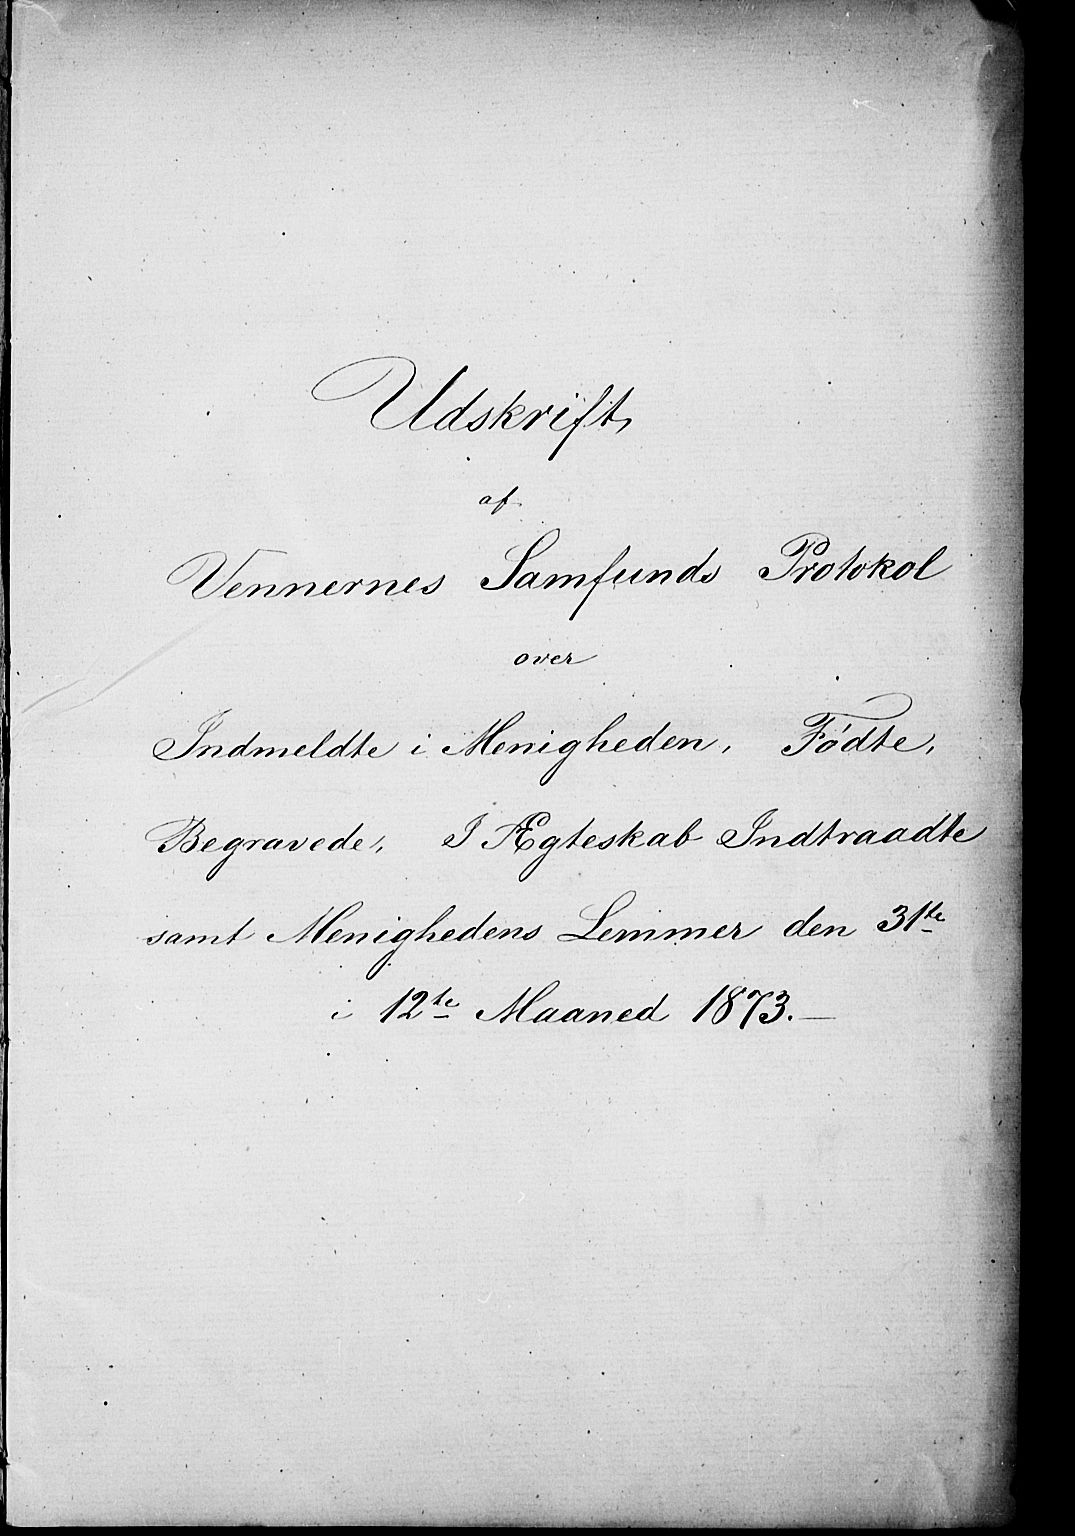 Udskrift
af
Vennernes Samfunds Protokol
over
Indmeldte i Menigheden, Fødte,
Begravede, I Ægteskab Indtraadte
samt Menighedens Lemmer den 31te
i 12te Maaned 1873.—